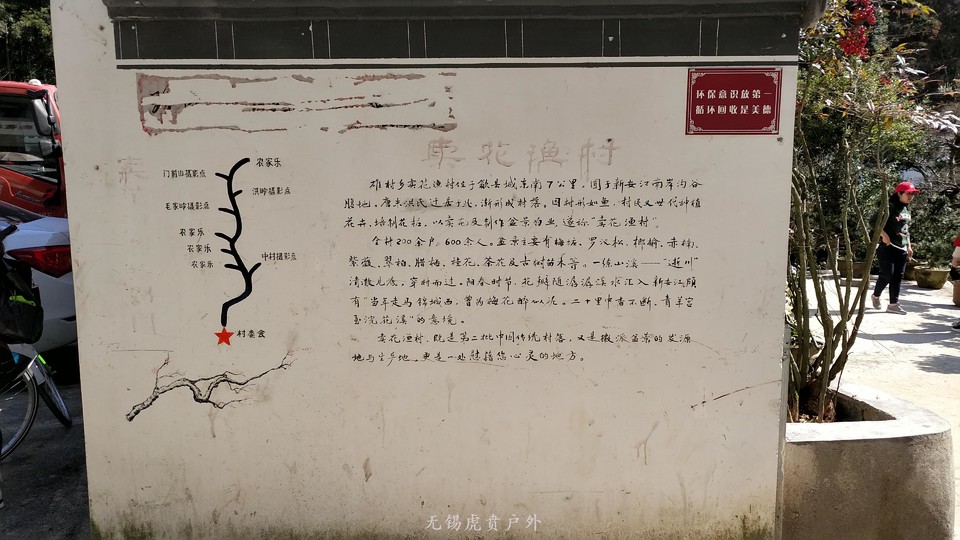 环保意识放第一
循环回收是美德
卖花渔村
农家乐
门前山摄影点
洪岭摄影点
毛家岭摄影点
农家乐
农家乐
中村摄影点
农家乐
村委会
雄村乡卖花渔村位于歙县城东南7公里,园于新安江南岸沟谷
腹地,唐末洪氏迁居于此,渐形成村落。因村形如鱼,村民又世代种植
花卉,培制花桩,以卖花及制作盆景为业,遂称“卖花渔村”。
全村200余户,600余人。盆景主要有梅桩、罗汉松、榔榆、赤楠、
紫薇、翠柏、腊梅、桂花、茶花及古树苗木等。一条山溪——“逝川”
清澈见底,穿村而过,阳春时节,花瓣随潺潺溪水汇入新安江颇
有“当年走马锦城西,曾为梅花醉似泥。二十里中香不断,青羊宫
至浣花溪”的意境。
卖花渔村,既是第二批中国传统村落,又是徽派盆景的发源
地与生产地,更是一处慰藉您心灵的地方。
无锡虎贲户外